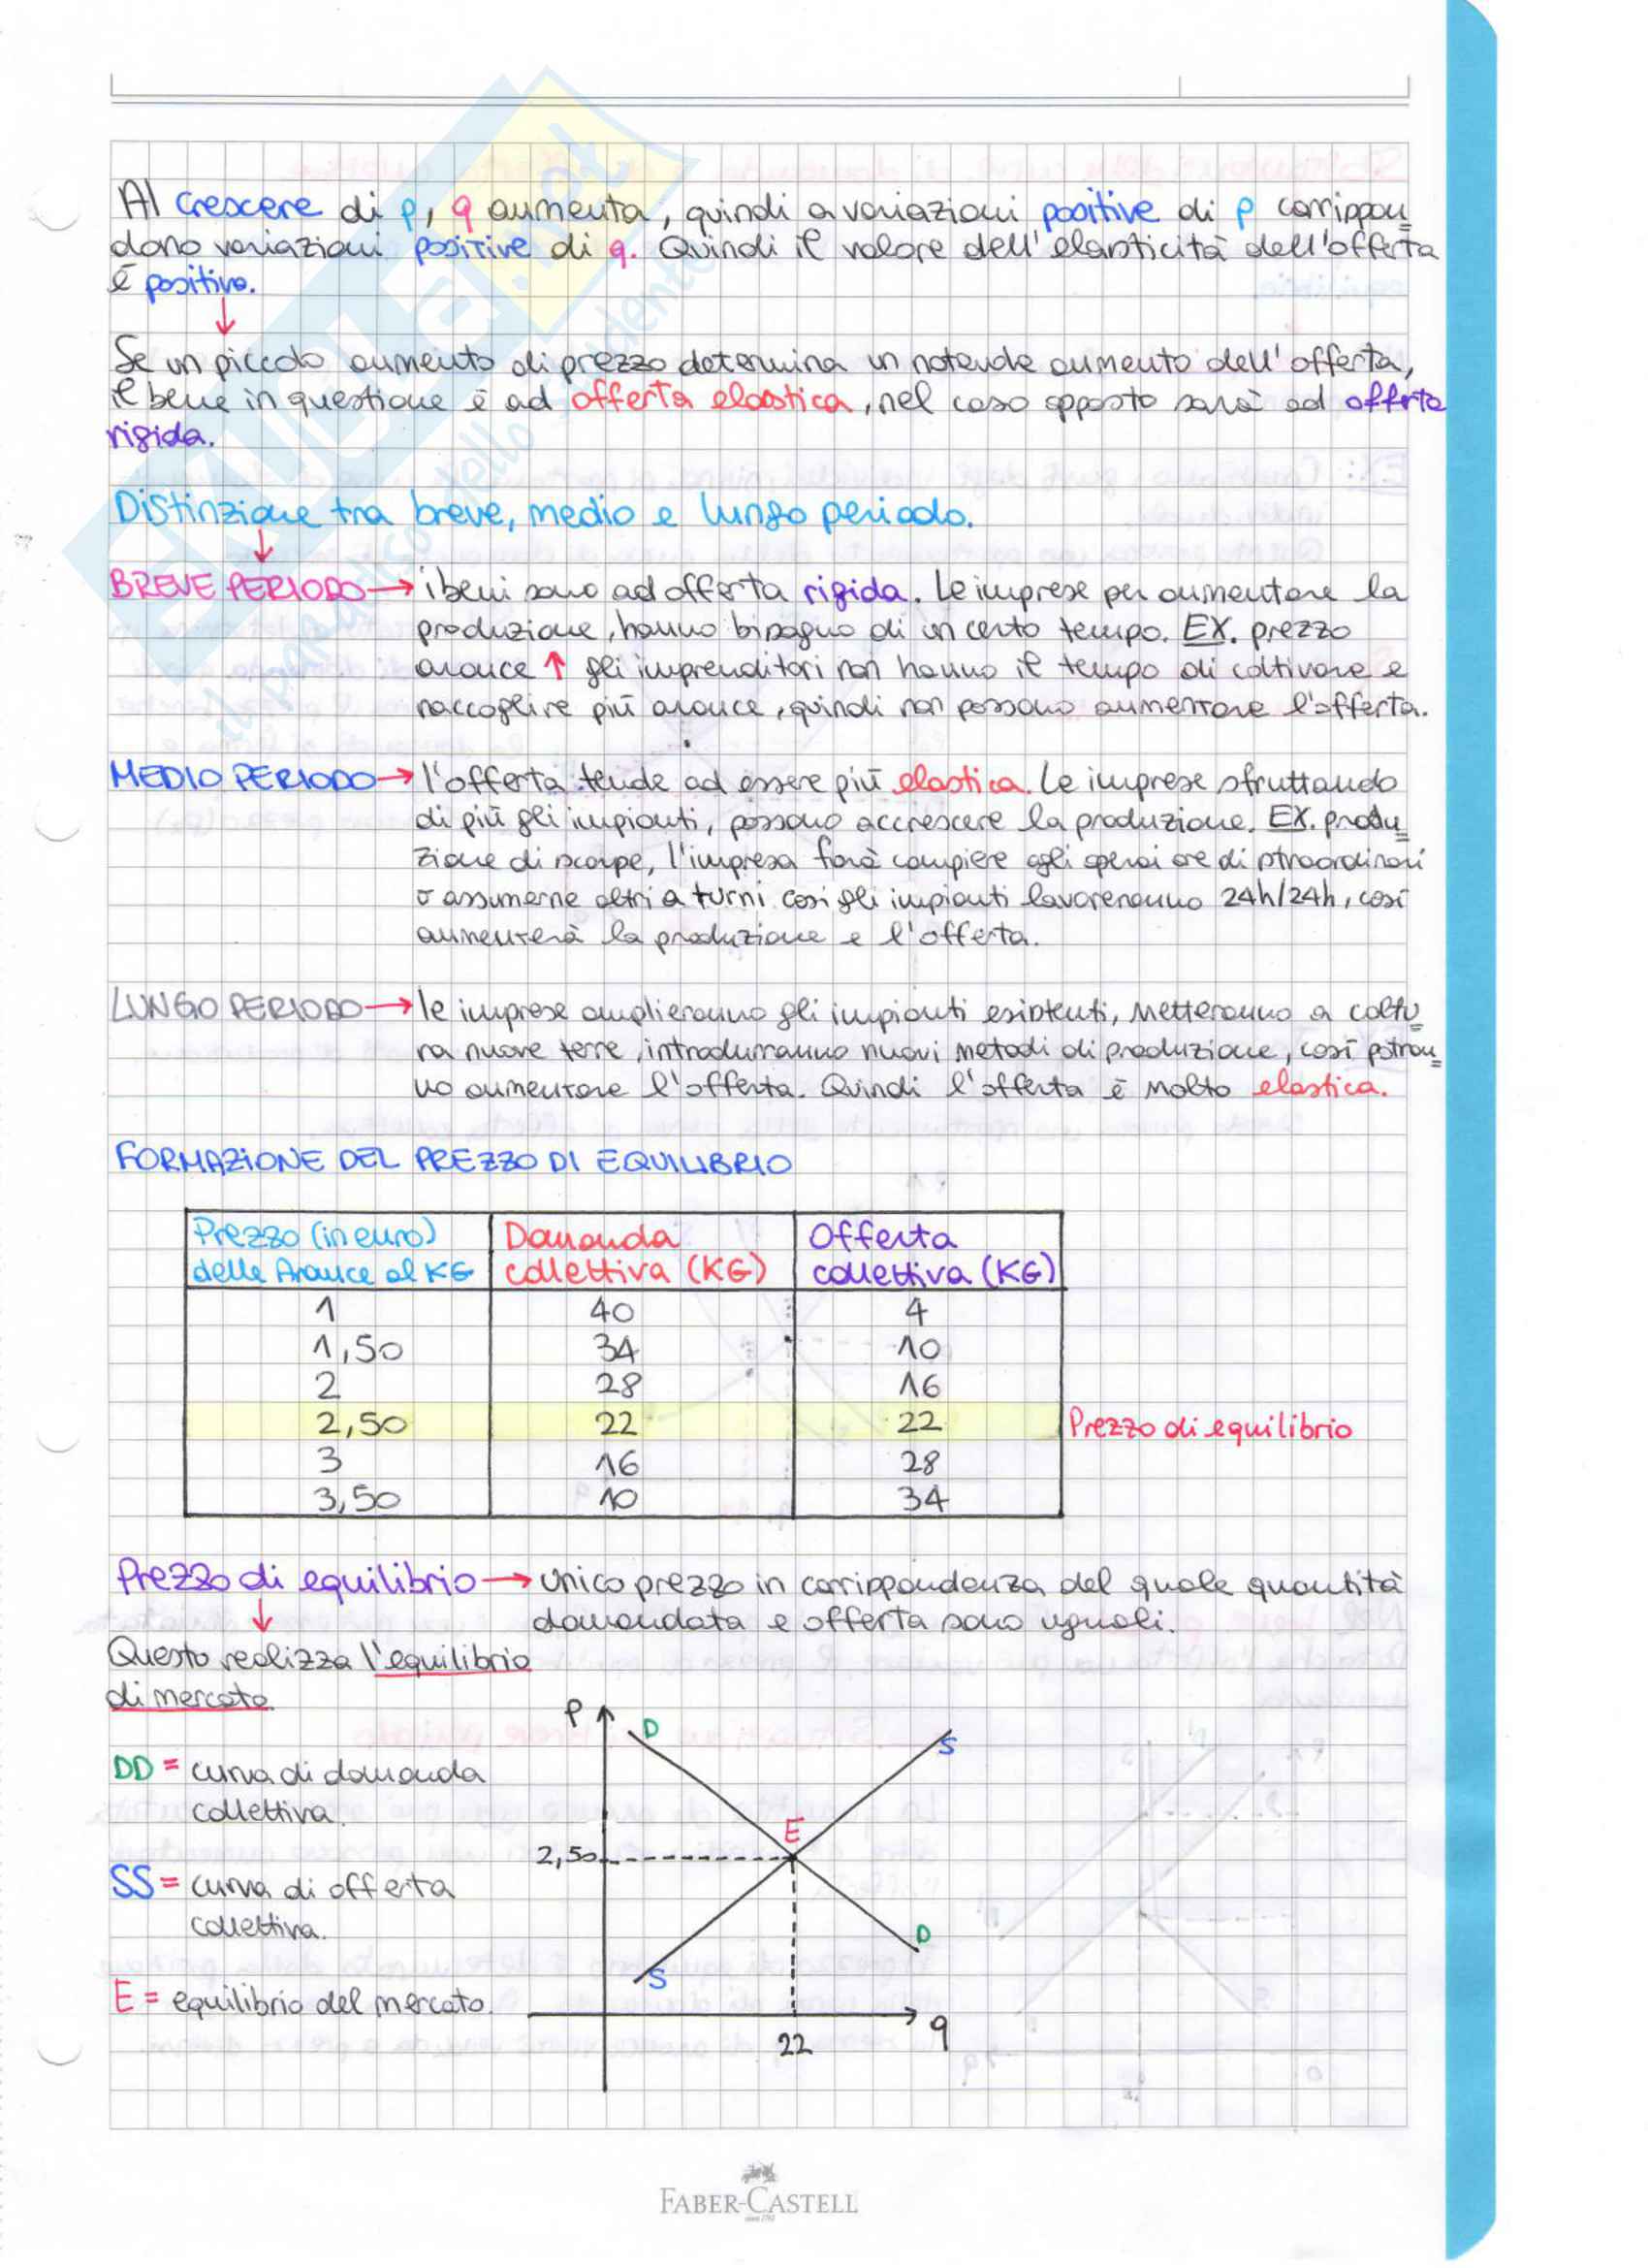 Al crescere di p, q aumenta, quindi a variazioni positive di p corrispon
dono variazioni positive di q. Quindi il valore dell'elasticità dell'offerta
è positivo.
↓
Se un piccolo aumento di prezzo determina un notevole aumento dell'offerta,
il bene in questione è ad offerta elastica, nel caso opposto sarà ad offerta
rigida.
Distinzione tra breve, medio e lungo periodo.
↓
BREVE PERIODO → i beni sono ad offerta rigida. Le imprese per aumentare la
produzione, hanno bisogno di un certo tempo. EX. prezzo
arance ↑ gli imprenditori non hanno il tempo di coltivare e
raccogliere più arance, quindi non possono aumentare l'offerta.
MEDIO PERIODO → l'offerta tende ad essere più elastica. Le imprese sfruttando
di più gli impianti, possono accrescere la produzione. EX. produ=
zione di scarpe, l'impresa farà compiere agli operai ore di straordinari
o assumerne altri a turni così gli impianti lavoreranno 24h/24h, così
aumenterà la produzione e l'offerta.
LUNGO PERIODO → le imprese amplieranno gli impianti esistenti, metteranno a coltu=
ra nuove terre, introdurranno nuovi metodi di produzione, così potran=
no aumentare l'offerta. Quindi l'offerta è molto elastica.
FORMAZIONE DEL PREZZO DI EQUILIBRIO
Prezzo (in euro) delle Arance al KG Domanda collettiva (KG) Offerta collettiva (KG)
1 40 4
1,50 34 10
2 28 16
2,50 22 22 Prezzo di equilibrio
3 16 28
3,50 10 34
Prezzo di equilibrio → unico prezzo in corrispondenza del quale quantità
domandata e offerta sono uguali.
↓
Questo realizza l'equilibrio
di mercato
DD = curva di domanda
collettiva.
SS = curva di offerta
collettiva.
E = equilibrio del mercato.
P
D
S
E
2,50
D
S
22
q
FABER-CASTELL